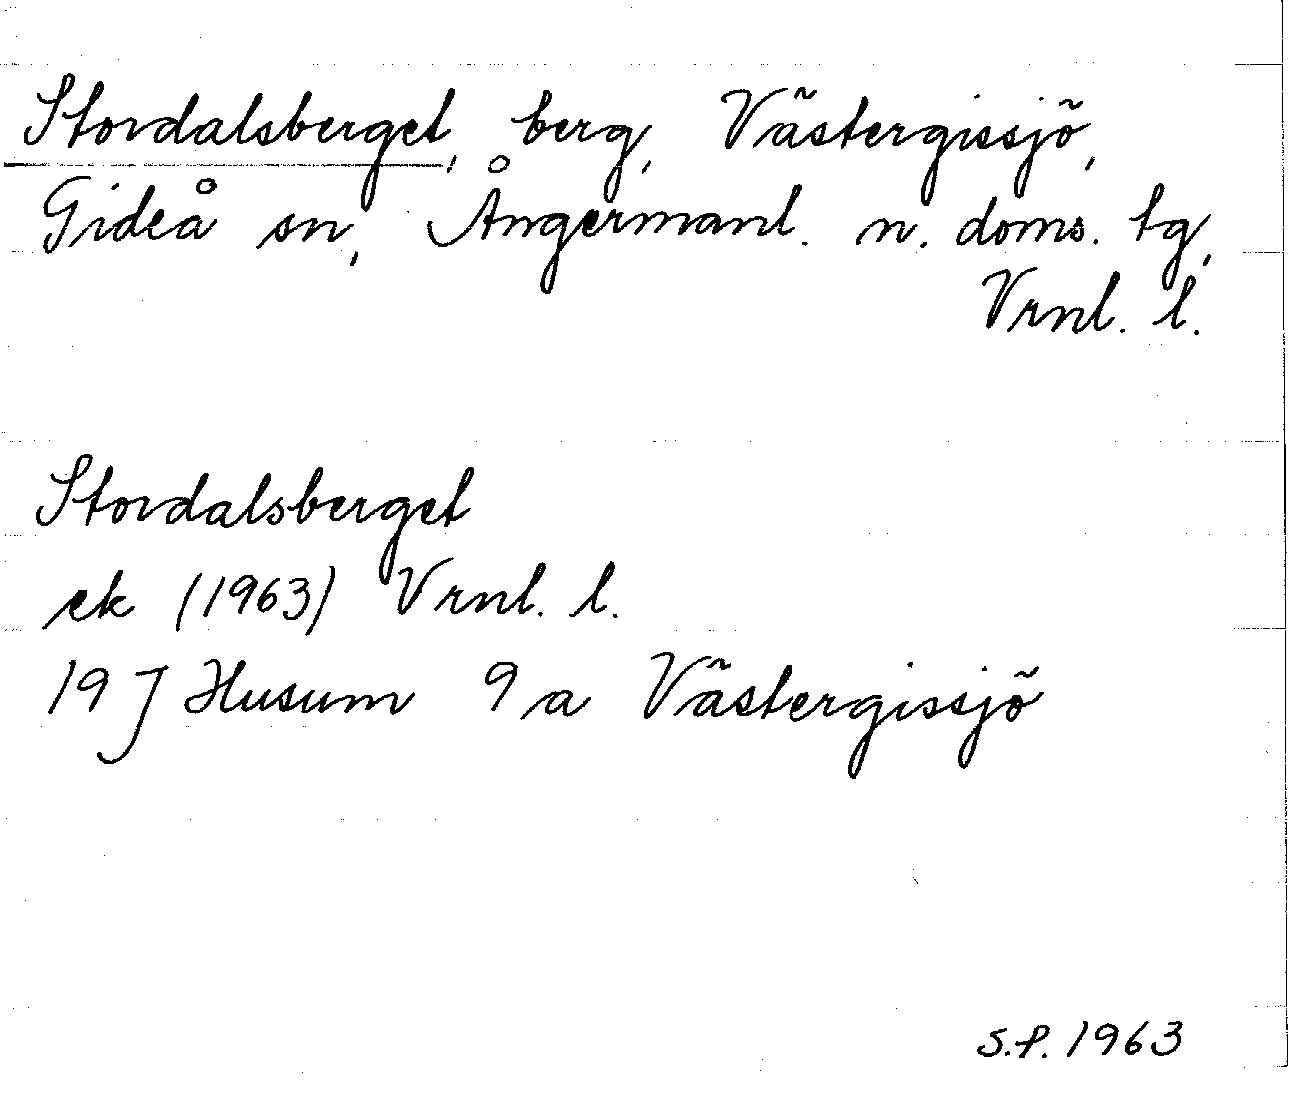 Stordalsberget, berg, Västergissjö,
Gideå sn, Ångermanl. n. doms. tg,
Vrnl. l.
Stordalsberget
ek (1963) Vrnl. l.
19 J Husum 9 a Västergissjö
S.P. 1963